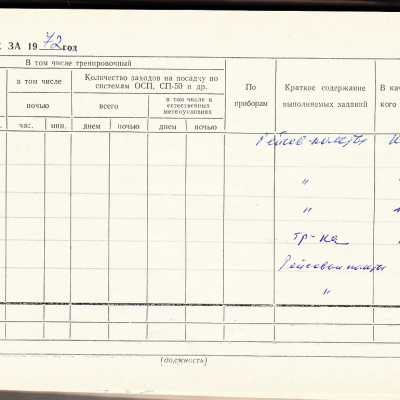 ЗА 1972 год
В том числе тренировочный
в том числе
ночью
час. мин.
Количество заходов на посадку по системам ОСП, СП-50 и др.
всего
в том числе в естественных метеоусловиях
днем ночью днем ночью
По приборам
Краткое содержание выполняемых заданий
В кач
кого
Рейсов. полеты
"
"
тр-ка
Рейсовые полеты
"
(должность)